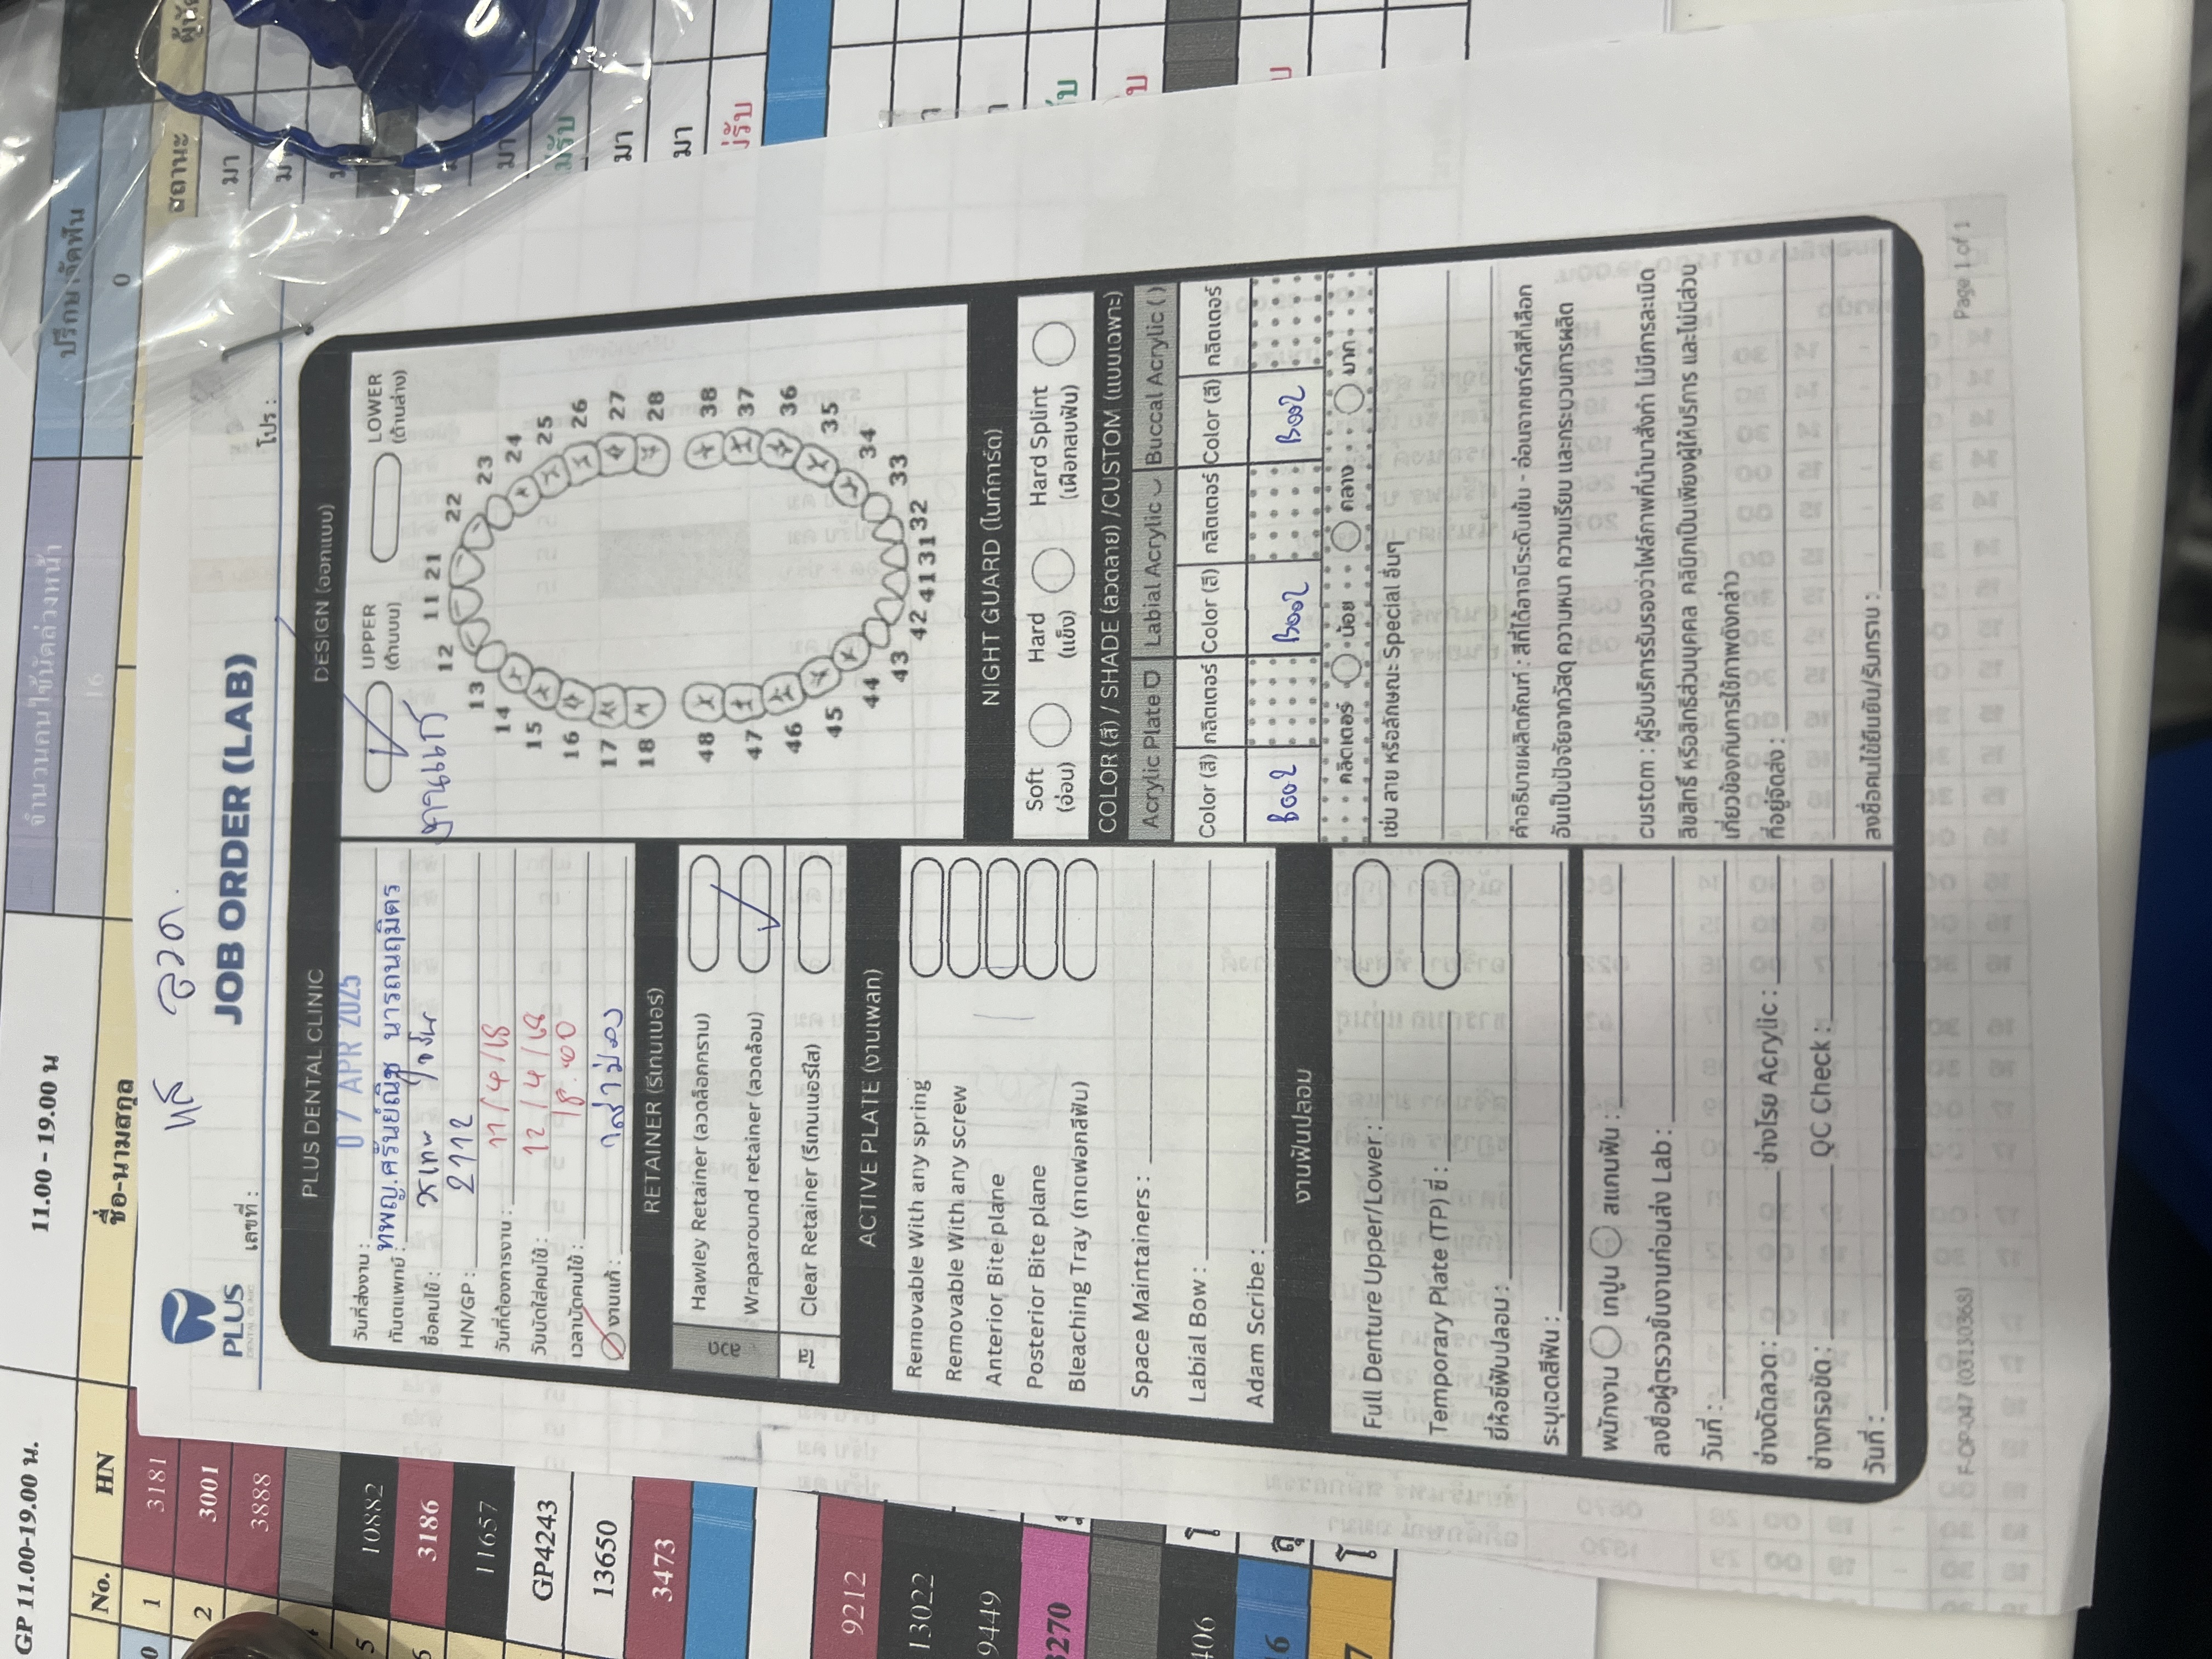 GP 11.00-19.00 น.
11.00 - 19.00 น
จำนวนคนไข้นัดล่วงหน้า
ปรึกษาจัดฟัน
16
0
No.
HN
ชื่อ-นามสกุล
สถานะ
1
3181
มา
2
3001
3888
5
10882
3186
11657
GP4243
13650
มา
3473
มา
9212
13022
9449
3270
406
PLUS
เลขที่ :
JOB ORDER (LAB)
โปร :
PLUS DENTAL CLINIC
วันที่ส่งงาน : 07 APR 2025
ทันตแพทย์ : ทพญ.ศรัันย์ณิช นารถนฤมิตร
ชื่อคนไข้ :
HN/GP : 2712
วันที่ต้องการงาน : 11/4/68
วันนัดใส่คนไข้ : 12/4/68
เวลานัดคนไข้ : 18.00
งานแก้ :
RETAINER (รีเทนเนอร์)
ลวด
Hawley Retainer (ลวดล็อกกราม)
Wraparound retainer (ลวดล้อม)
Clear Retainer (รีเทนเนอร์ใส)
ACTIVE PLATE (งานเพลท)
Removable With any spring
Removable With any screw
Anterior Bite plane
Posterior Bite plane
Bleaching Tray (ถาดฟอกสีฟัน)
Space Maintainers :
Labial Bow :
Adam Scribe :
งานฟันปลอม
Full Denture Upper/Lower :
Temporary Plate (TP) ซี่ :
ยี่ห้อซี่ฟันปลอม :
ระบุเฉดสีฟัน :
พนักงาน เทปูน สแกนฟัน :
ลงชื่อผู้ตรวจชิ้นงานก่อนส่ง Lab :
วันที่ :
ช่างดัดลวด : ช่างโรย Acrylic :
ช่างกรอขัด : QC Check :
วันที่ :
DESIGN (ออกแบบ)
UPPER
(ด้านบน)
LOWER
(ด้านล่าง)
ฐานแก้
12 11 21 22
13 23
14 24
15 25
16 26
17 27
18 28
48 38
47 37
46 36
45 35
44 34
43 33
42 41 31 32
NIGHT GUARD (ไนท์การ์ด)
Soft
(อ่อน)
Hard
(แข็ง)
Hard Splint
(เฝือกสบฟัน)
COLOR (สี) / SHADE (ลวดลาย) /CUSTOM (แบบเฉพาะ)
Acrylic Plate Labial Acrylic Buccal Acrylic ( )
Color (สี) กลิตเตอร์ Color (สี) กลิตเตอร์ Color (สี) กลิตเตอร์
B002 B002 B002
กลิตเตอร์ น้อย กลาง มาก
เช่น ลาย หรือลักษณะ Special อื่นๆ
คำอธิบายผลิตภัณฑ์ : สีที่ได้อาจมีระดับเข้ม - อ่อนจากชาร์ทสีที่เลือก
อันเป็นปัจจัยจากวัสดุ ความหนา ความเรียบ และกระบวนการผลิต
Custom : ผู้รับบริการรับรองว่าไฟล์ภาพที่นำมาสั่งทำ ไม่มีการละเมิด
ลิขสิทธิ์ หรือสิทธิส่วนบุคคล คลินิกเป็นเพียงผู้ให้บริการ และไม่มีส่วน
เกี่ยวข้องกับการใช้ภาพดังกล่าว
ที่อยู่จัดส่ง :
ลงชื่อคนไข้ยืนยัน/รับทราบ :
F-OP-047 (03130368)
Page 1 of 1